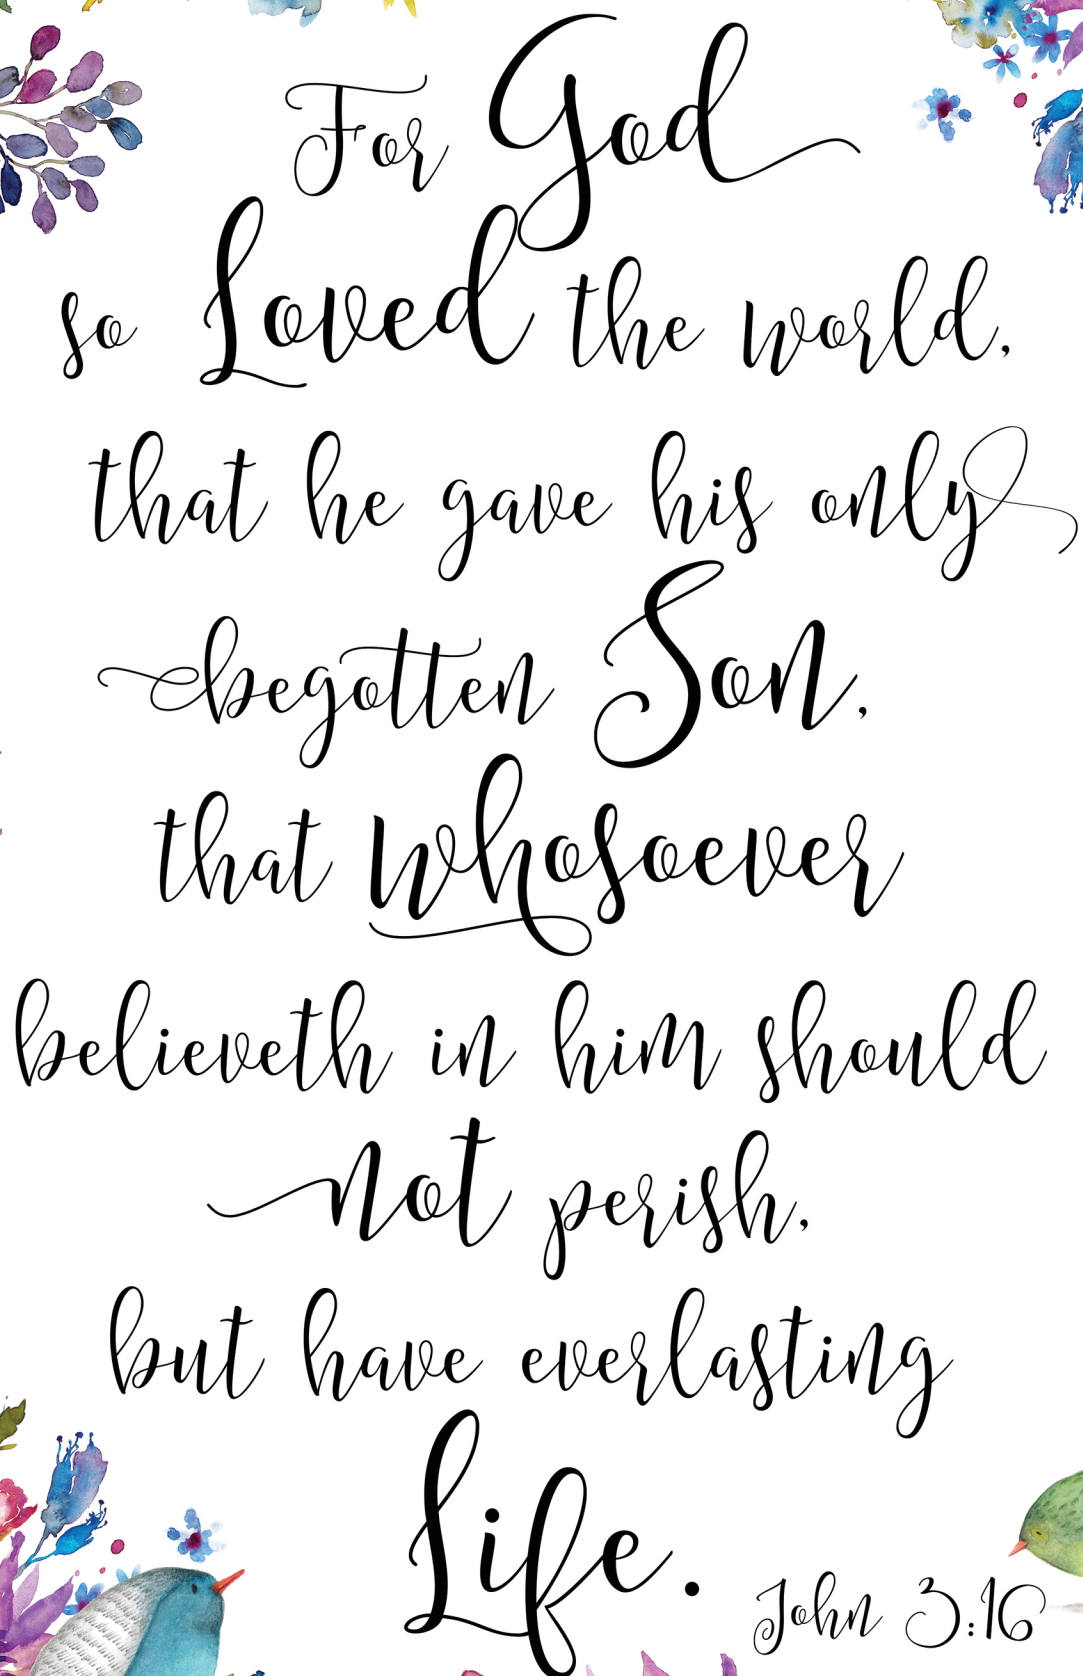 For God
so Loved the world,
that he gave his only
begotten Son,
that whosoever
believeth in him should
not perish,
but have everlasting
Life.
John 3:16